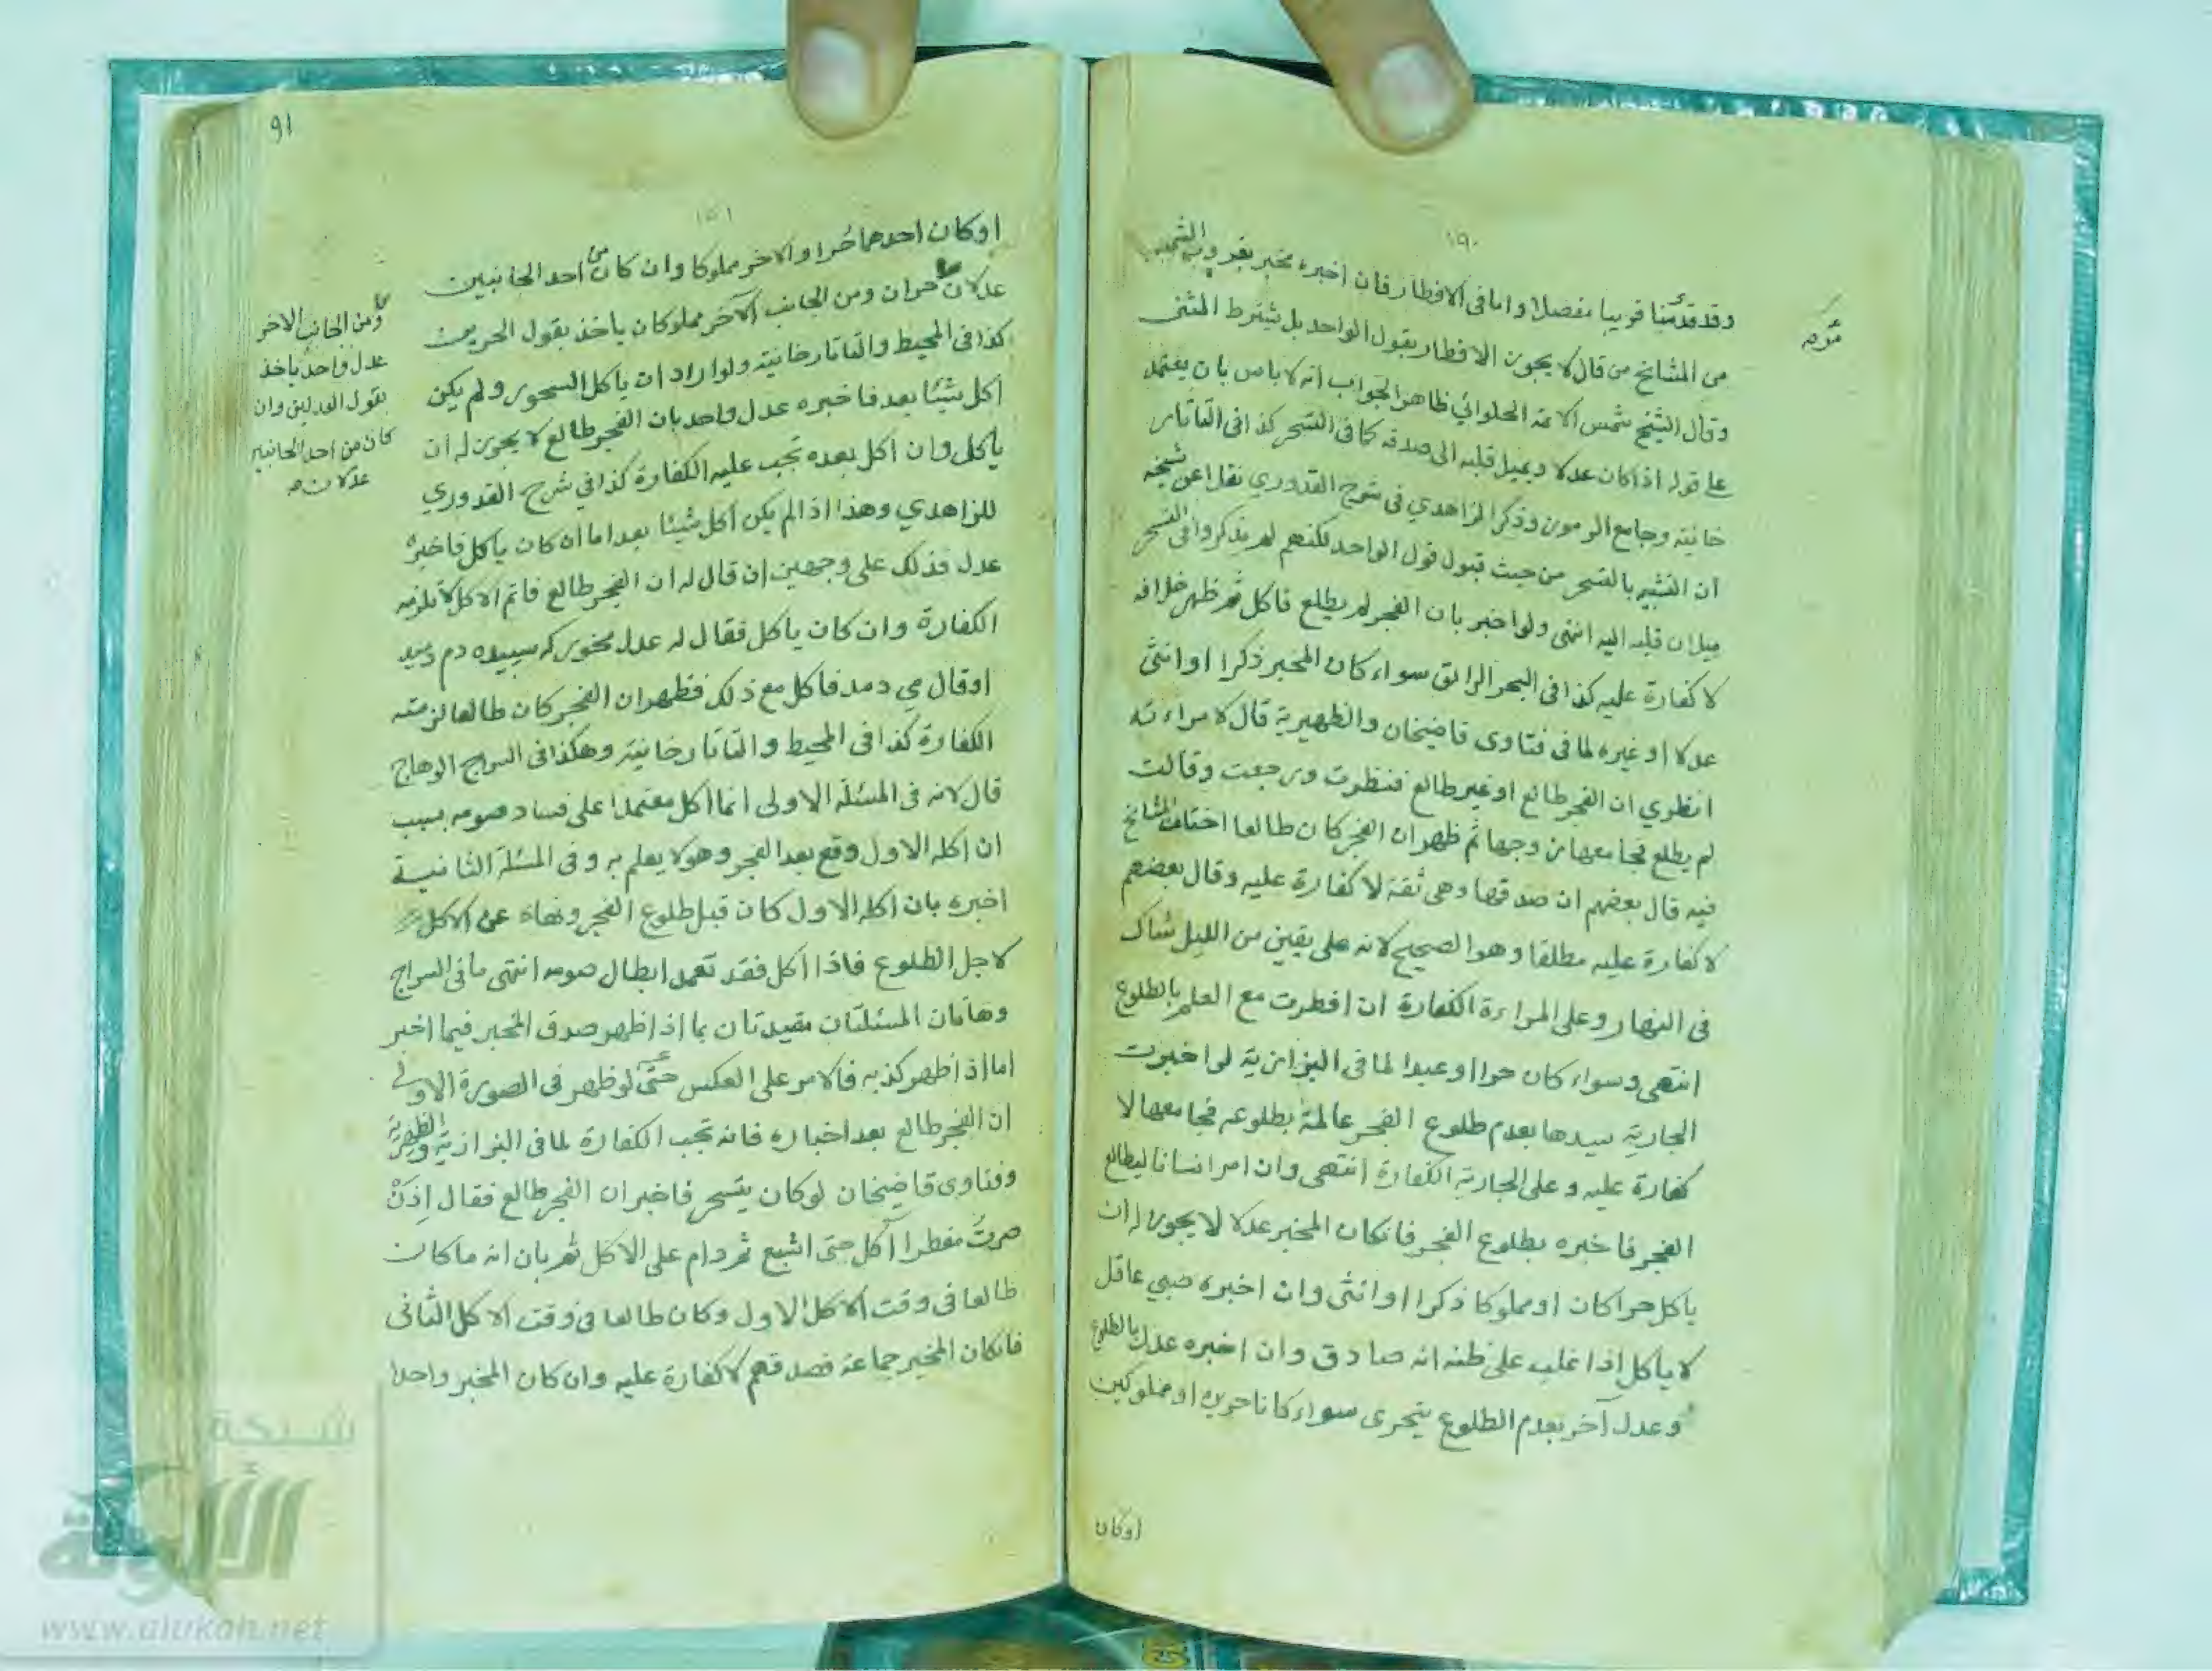 ١٩٠
وقد قدمنا قريبا مفصلا واما فى الافطار فان اخبره مخبر بغروب الشمس
من المشايخ من قال لا يجوز الافطار بقول الواحد بل يشترط المثنى
وقال الشيخ شمس الائمة الحلوائي ظاهر الجواب انه لا باس بان يعتمد
على قوله اذا كان عدلا ويميل قلبه الى صدقه كما فى التسحر كذا فى التاتار
خانية وجامع الرموز وذكر الزاهدي فى شرح القدوري نقلا عن شيخه
ان التشبيه بالتسحر من حيث قبول قول الواحد لكنهم لم يذكروا فى التسحر
ميلان قلبه اليه انتهى ولو اخبر بان الفجر لم يطلع فاكل ثم ظهر خلافه
لا كفارة عليه كذا فى البحر الرائق سواء كان المخبر ذكرا او انثى
عدلا او غيره لما فى فتاوى قاضيخان والظهيرية قال لامراءته
انظري ان الفجر طالع او غير طالع فنظرت ورجعت وقالت
لم يطلع فجامعها زوجها ثم ظهر ان الفجر كان طالعا اختلف المشايخ
فيه قال بعضهم ان صدقها وهى ثقة لا كفارة عليه وقال بعضهم
لا كفارة عليه مطلقا وهو الصحيح لانه على يقين من الليل شاك
فى النهار وعلى المراءة الكفارة ان افطرت مع العلم بالطلوع
انتهى وسواء كان حرا او عبدا لما فى البزازية لو اخبرت
الجارية سيدها بعدم طلوع الفجر عالمة بطلوعه فجامعها لا
كفارة عليه وعلى الجارية الكفارة انتهى وان امر انسانا ليطالع
الفجر فاخبره بطلوع الفجر فانكان المخبر عدلا لا يجوز له ان
ياكل حرا كان او مملوكا ذكرا او انثى وان اخبره صبي عاقل
لا ياكل اذا غلب على ظنه انه صادق وان اخبره عدل بالطلوع
وعدل آخر بعدم الطلوع يتحرى سواء كانا حرين او مملوكين
اوكان
91
١٥١
اوكان احدهما حُرا والاخر مملوكا وان كان من احد الجانبين
عدلان حران ومن الجانب الآخر مملوكان ياخذ بقول الحرين
كذا فى المحيط والتاتارخانية ولو اراد ان ياكل السحور ولم يكن
اكل شيئا بعد فاخبره عدل واحد بان الفجر طالع لا يجوز له ان
ياكل وان اكل بعده تجب عليه الكفارة كذا في شرح القدوري
للزاهدي وهذا اذا لم يكن اكل شيئا بعد اما ان كان ياكل فاخبره
عدل فذلك على وجهين ان قال له ان الفجر طالع فاتم الاكل لا تلزمه
الكفارة وان كان ياكل فقال له عدل مخور كه سپيده دم دميد
اوقال مي دمد فاكل مع ذلك فظهر ان الفجر كان طالعا لزمته
الكفارة كذا فى المحيط والتاتارخانية وهكذا فى السراج الوهاج
قال لانه فى المسئلة الاولى انما اكل معتمدا على فساد صومه بسبب
ان اكله الاول وقع بعد الفجر وهو لا يعلم به وفى المسئلة الثانية
اخبره بان اكله الاول كان قبل طلوع الفجر ونهاه عن الاكل
لاجل الطلوع فاذا اكل فقد تعمد ابطال صومه انتهى ما فى السراج
وهاتان المسئلتان مقيدتان بما اذا ظهر صدق المخبر فيما اخبر
اما اذا ظهر كذبه فالامر على العكس حتى لو ظهر فى الصورة الاولى
ان الفجر طالع بعد اخباره فانه تجب الكفارة لما فى البزازية والظهيرية
وفتاوى قاضيخان لو كان يتسحر فاخبر ان الفجر طالع فقال اِذَنْ
صرتُ مفطرا آكل حتى اشبع ثم دام على الاكل ثم بان انه ما كان
طالعا فى وقت الاكل الاول وكان طالعا فى وقت الاكل الثانى
فانكان المخبر جماعة فصدقهم لا كفارة عليه وان كان المخبر واحدا
ومن الجانب الاخر
عدل واحد ياخذ
بقول العدلين وان
كان من احد الجانبين
عدلان صح
شبكة
الألوكة
www.alukah.net